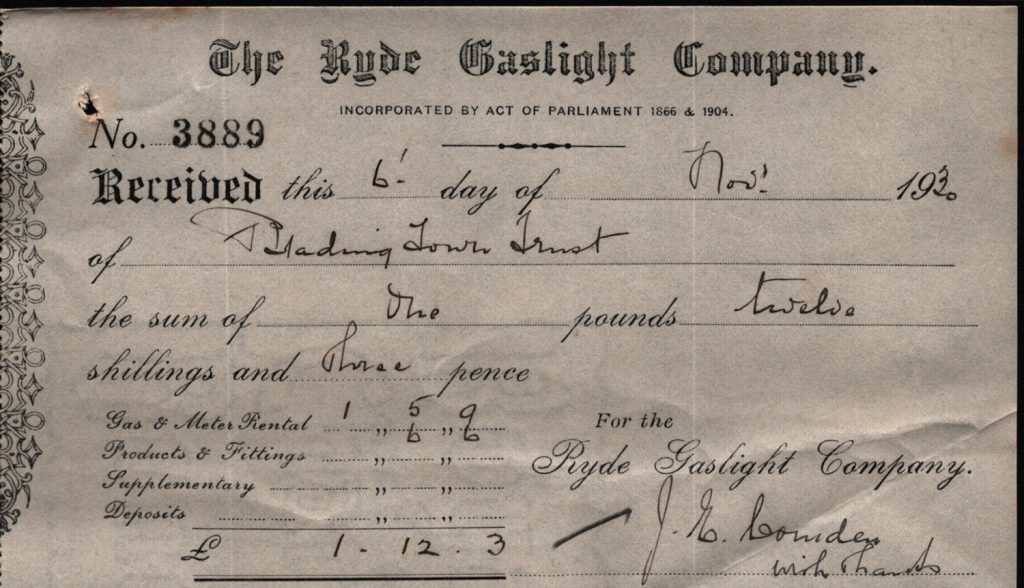 The Ryde Gaslight Company.
INCORPORATED BY ACT OF PARLIAMENT 1866 & 1904.
No. 3889
Received this 6 day of Nov 1930
of Brading Town Trust
the sum of One pounds twelve
shillings and Three pence
Gas & Meter Rental 1 „ 5 „ 9
Products & Fittings „ 6 „ 6
Supplementary „ „
Deposits „ „
£ 1 - 12 . 3
For the
Ryde Gaslight Company.
J. E.
with Thanks